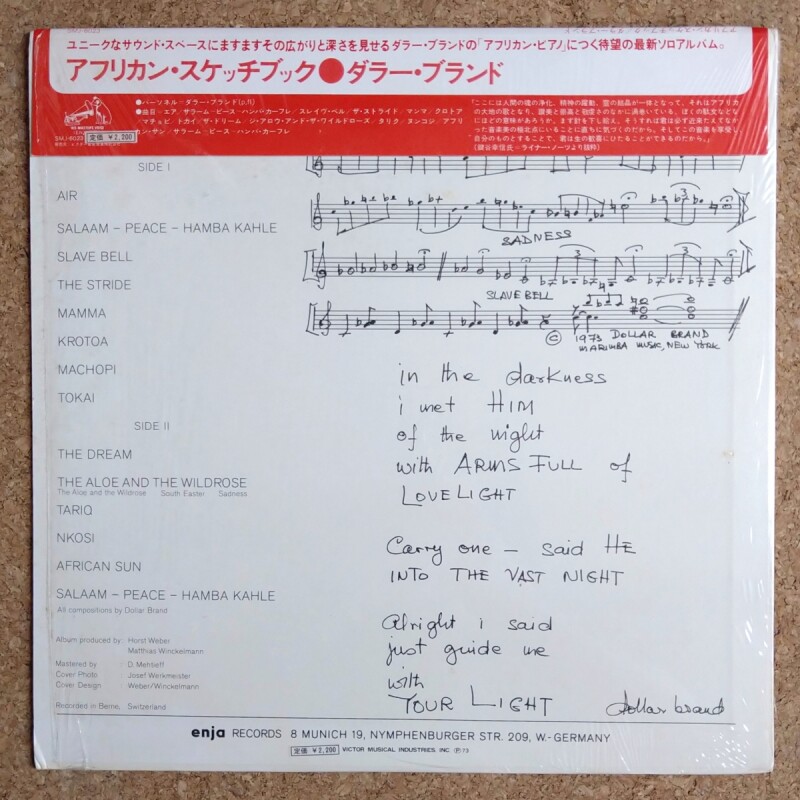 SMJ-6023
ユニークなサウンド・スペースにますますその広がりと深さを見せるダラー・ブランドの「アフリカン・ピアノ」につく待望の最新ソロアルバム。
アフリカン・スケッチブック●ダラー・ブランド
●パーソネル=ダラー・ブランド(p,fl)
●曲目=エア/サラーム-ピース-ハンバ・カーフレ スレイヴ・ベル/ザ・ストライド/マンマ/クロトア
マチョピ/トカイ/ザ・ドリーム/ジ・アロウ・アンド・ザ・ワイルドローズ/タリク/ヌンコジ/アフリ
カン・サン/サラーム-ピース-ハンバ・カーフレ
SMJ-6023 定価 ¥2,200
SIDE I
AIR
SALAAM – PEACE – HAMBA KAHLE
SLAVE BELL
THE STRIDE
MAMMA
KROTOA
MACHOPI
TOKAI
SIDE II
THE DREAM
THE ALOE AND THE WILDROSE
The Aloe and the Wildrose South Easter Sadness
TARIQ
NKOSI
AFRICAN SUN
SALAAM – PEACE – HAMBA KAHLE
All compositions by Dollar Brand
Album produced by: Horst Weber
Matthias Winckelmann
Mastered by D. Mehsieff
Cover Photo Josef Werkmeister
Cover Design Weber/Winckelmann
Recorded in Berne, Switzerland
SADNESS
SLAVE BELL
© 1973 DOLLAR BRAND
MARIMBA MUSIC, NEW YORK
in the darkness
i met HIM
of the night
with ARMS FULL of
LOVELIGHT
Carry one – said HE
INTO THE VAST NIGHT
Alright i said
just guide me
with
YOUR LIGHT
dollar brand
enja RECORDS 8 MUNICH 19, NYMPHENBURGER STR. 209, W.-GERMANY
定価 ¥2,200 VICTOR MUSICAL INDUSTRIES, INC. ℗ 73